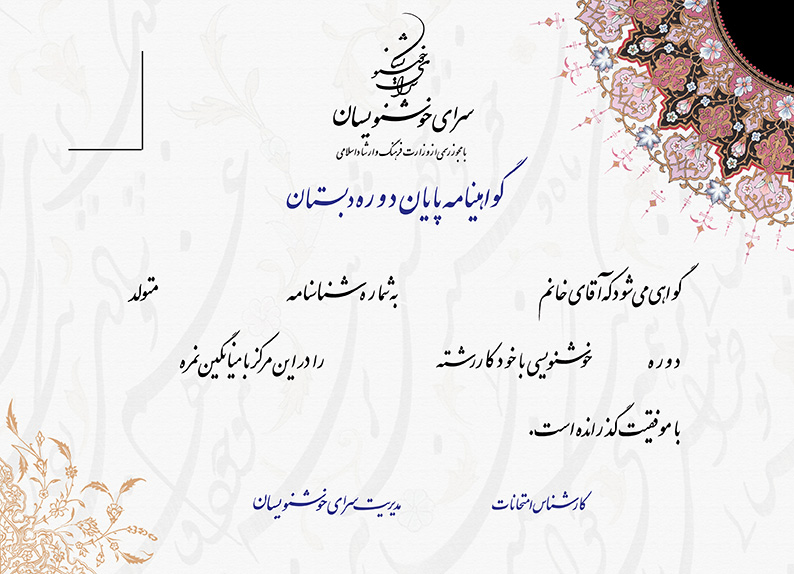 سرای خوشنویسان
سرای خوشنویسان
با مجوز رسمی از وزارت فرهنگ و ارشاد اسلامی
گواهینامه پایان دوره دبستان
گواهی می شود که آقای خانم به شماره شناسنامه متولد
دوره خوشنویسی با خودکار رشته را در این مرکز با میانگین نمره
با موفقیت گذرانده است.
کارشناس امتحانات مدیریت سرای خوشنویسان